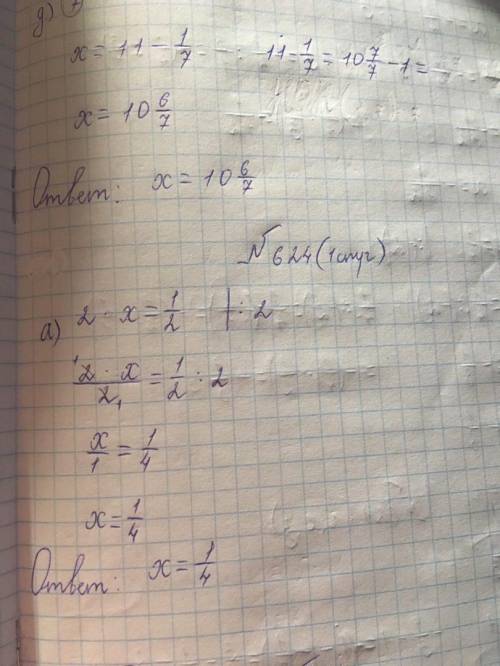 д)
x = 11 - 1/7 11 - 1/7 = 10 7/7 - 1 =
x = 10 6/7
Ответ: x = 10 6/7
№624(1стуг)
а) 2 · x = 1/2 | : 2
2 · x / 2 = 1/2 : 2
x/1 = 1/4
x = 1/4
Ответ: x = 1/4